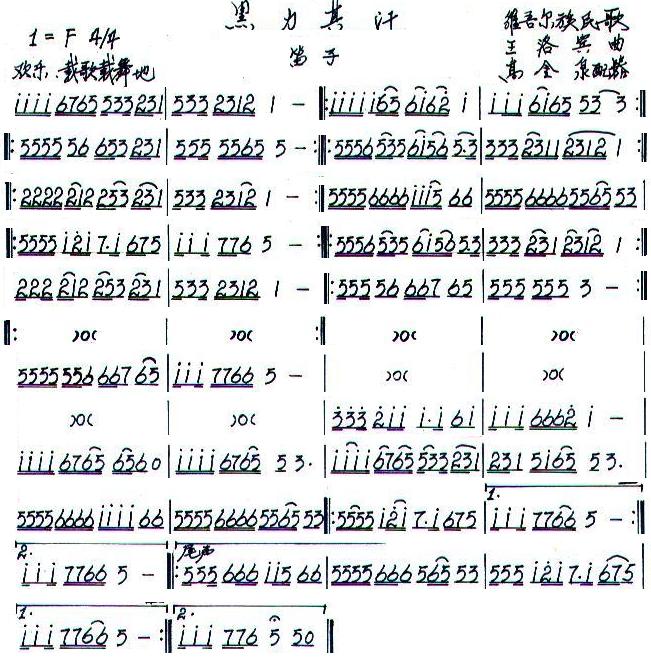 黑力其汗
1=F 4/4
笛子
维吾尔族民歌
王洛宾曲
高金泉配器
欢乐、载歌载舞地
i̇i̇i̇i̇ 6765 533 231 | 533 2312 1 – |: i̇i̇i̇i̇ i̇65 6i̇62̇ i̇ | i̇i̇i̇ 6i̇65 53 3 :|
|: 5555 56 653 231 | 555 5565 5 – :|: 5556 535 6i̇56 5·3 | 333 2311 2312 1 :|
|: 2222 212 253 231 | 533 2312 1 – | 5555 6666 i̇i̇i̇5 66 | 5555 6666 5565 53 |
|: 5555 i̇2̇i̇ 7·i̇ 675 | i̇i̇i̇ 776 5 – :|: 5556 535 6i̇56 5·3 | 333 231 2312 1 :|
222 212 253 231 | 533 2312 1 – |: 555 56 667 65 | 555 555 3 – :|
|: )0( | )0( :| )0( | )0( |
5555 556 667 65 | i̇i̇i̇ 7766 5 – | )0( | )0( |
)0( | )0( | 3̇3̇3̇ 2̇i̇i̇ i̇·i̇ 6i̇ | i̇i̇i̇ 6662̇ i̇ – |
i̇i̇i̇i̇ 6765 6560 | i̇i̇i̇i̇ 6765 53· | i̇i̇i̇i̇ 6765 533 231 | 231 5i̇65 53· |
5555 6666 i̇i̇i̇i̇ 66 | 5555 6666 5565 53 |: 5555 i̇2̇i̇ 7·i̇ 675 | 1. i̇i̇i̇ 7766 5 – :|
2. i̇i̇i̇ 7766 5 – |: 尾声 555 666 i̇i̇5 66 | 5555 666 565 53 | 555 i̇2̇i̇ 7·i̇ 675 |
1. i̇i̇i̇ 7766 5 – :| 2. i̇i̇i̇ 776 5 50 ‖